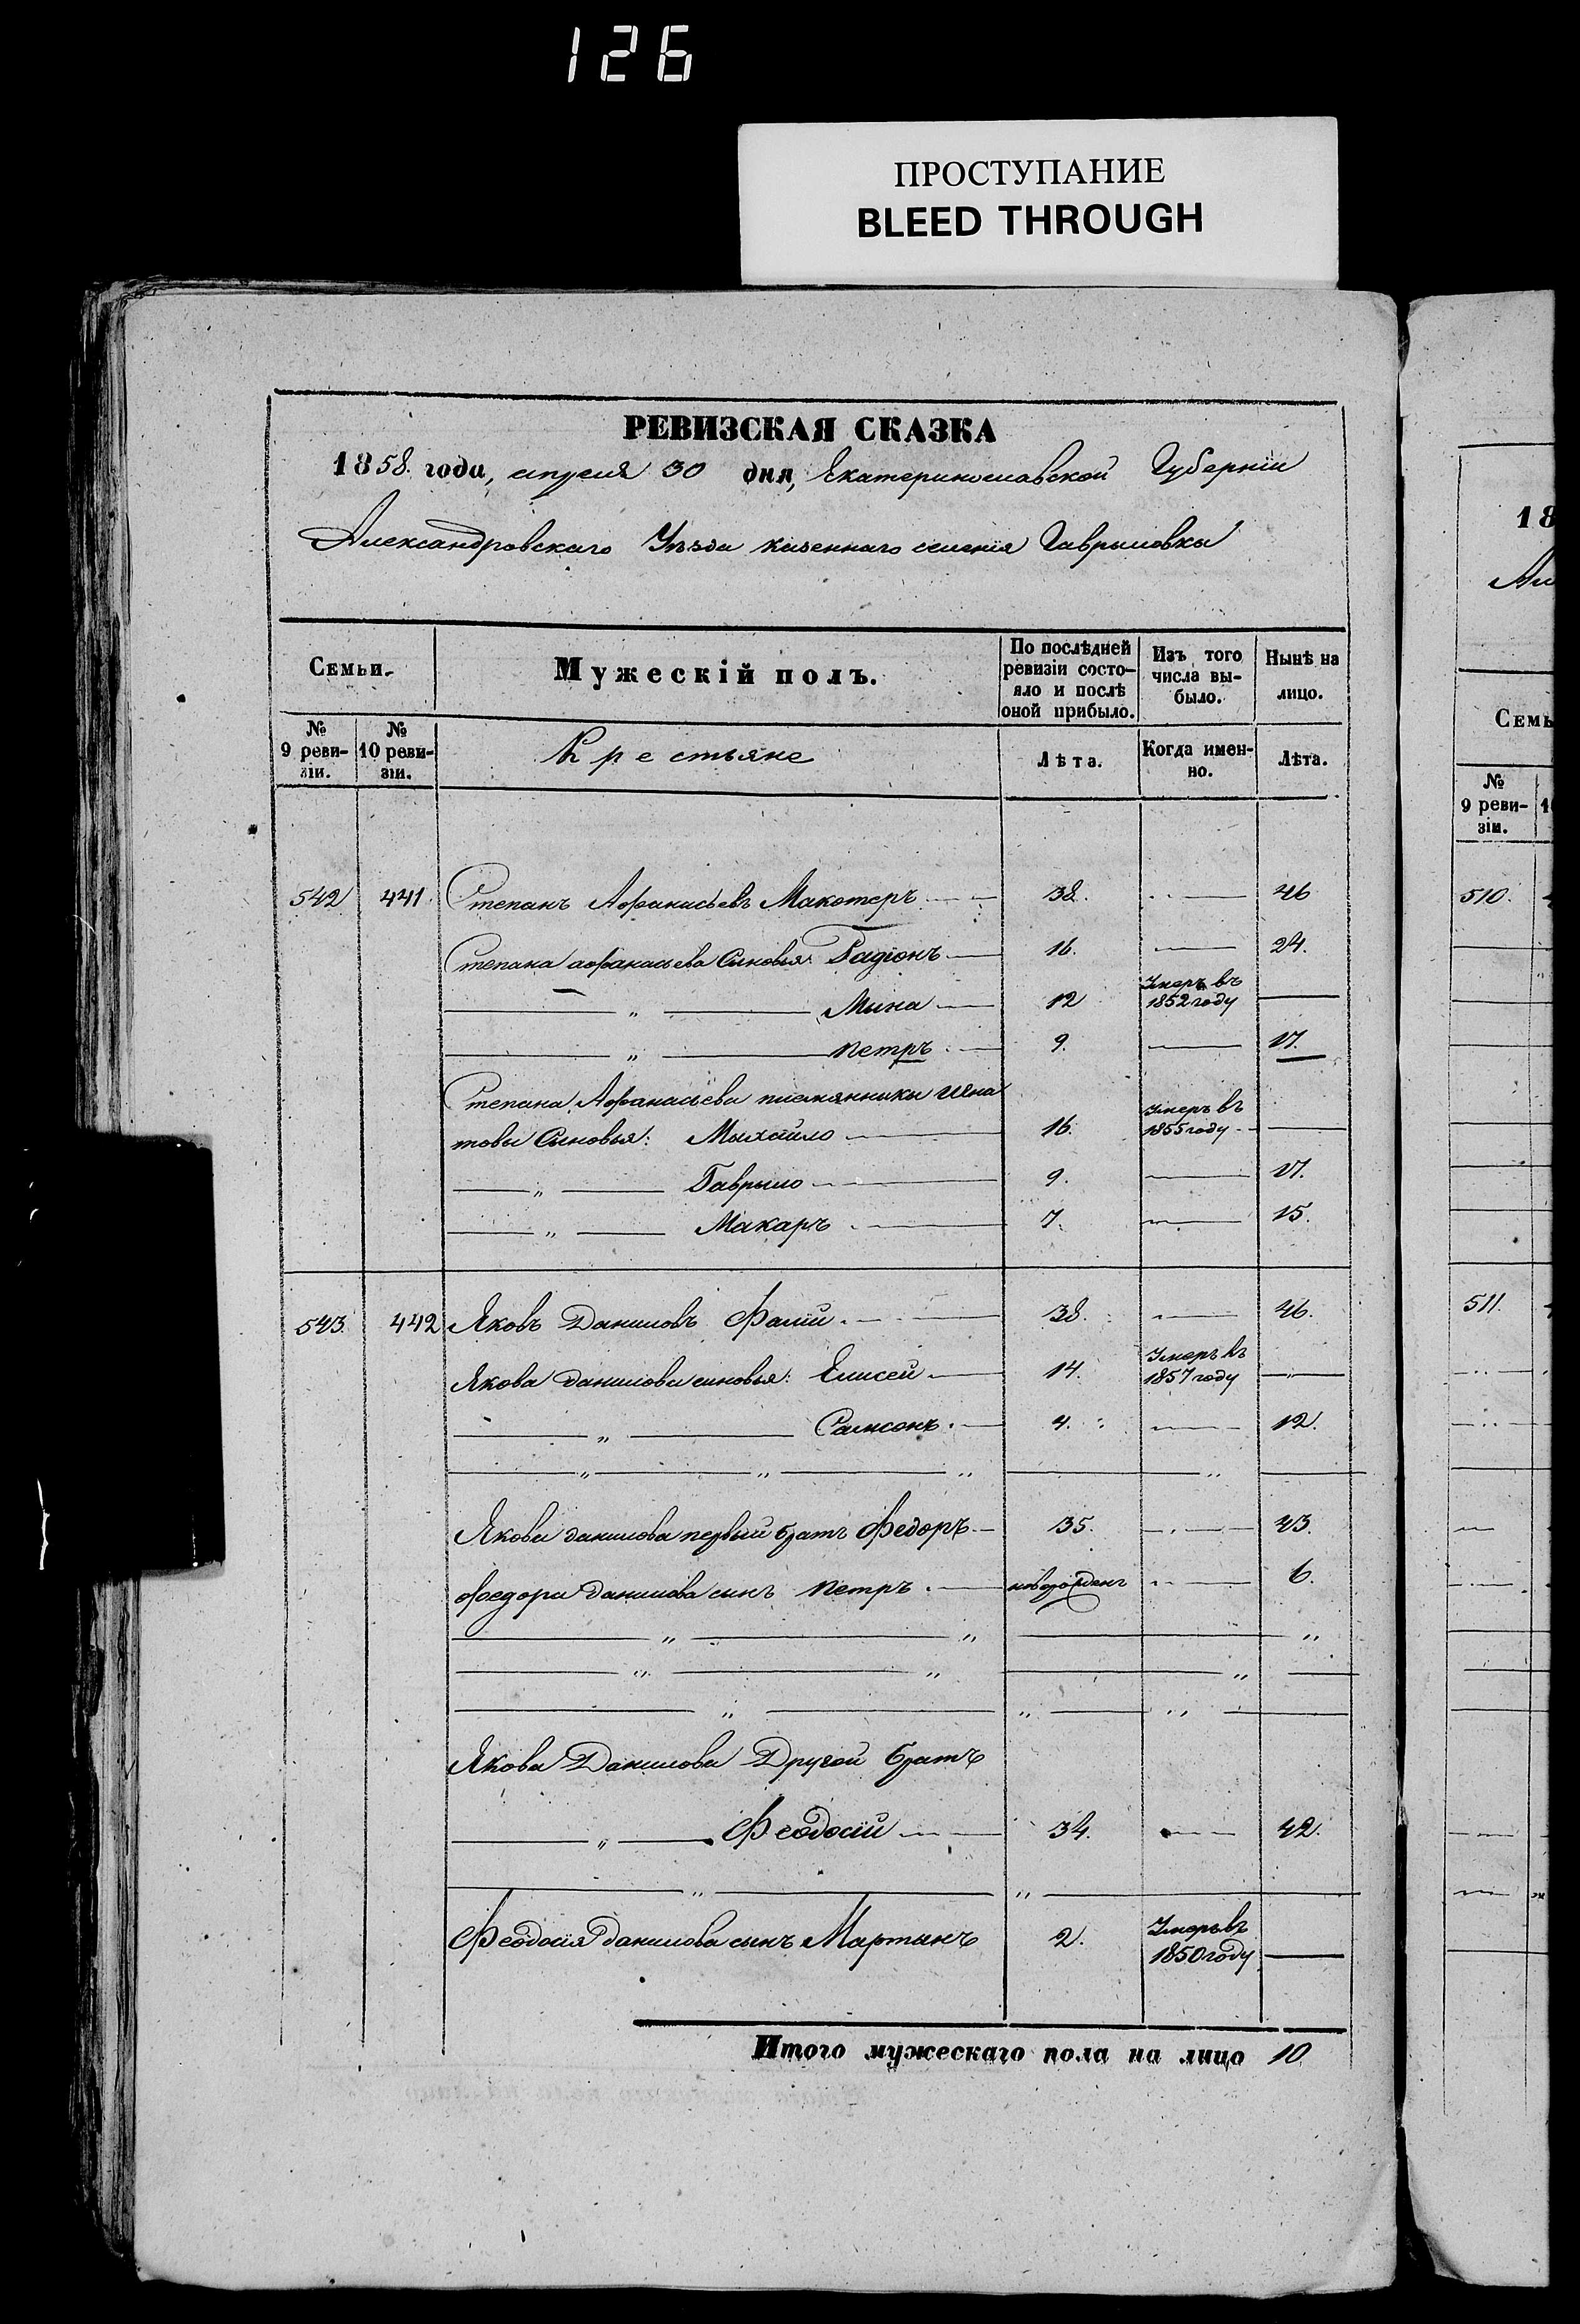 126
ПРОСТУПАНИЕ
BLEED THROUGH
РЕВИЗСКАЯ СКАЗКА
1858. года, апреля 30 дня, Екатеринославской Губерніи
Александровскаго Уѣзда казеннаго селенія Гаврыловки
Семьи.
Мужескій полъ.
По послѣдней ревизіи состо-яло и послѣ оной прибыло.
Изъ того числа вы-было.
Нынѣ на лицо.
№ 9 реви-зіи.
№ 10 реви-зіи.
Крестьяне
Лѣта.
Когда имен-но.
Лѣта.
542 441. Степанъ Афанасьевъ Макотеръ 38. 46
Степана афанасьева Сыновья: Радіонъ 16. 24.
" Мына 12 Умеръ въ 1852 году
" Петръ 9. 17.
Степана Афанасьева племянники Игна
товы Сыновья: Мыхайло 16. Умеръ въ 1855 году
" Гаврыло 9. 17.
" Макаръ 7. 15.
543. 442 Яковъ Даниловъ Фалій 38. 46.
Якова данилова сыновья: Елисей 14. Умеръ въ 1857 году
" Самсонъ 4. 12.
Якова данилова первый братъ Федоръ 35. 43.
Федора данилова сынъ Петръ новорожденъ 6.
Якова Данилова Другой братъ
" Феодосій 34. 42.
Феодосія данилова сынъ Мартынъ 2. Умеръ въ 1850 году
Итого мужескаго пола на лицо 10
18
Ал
Семь
№ 9 реви-зіи.
510.
511.